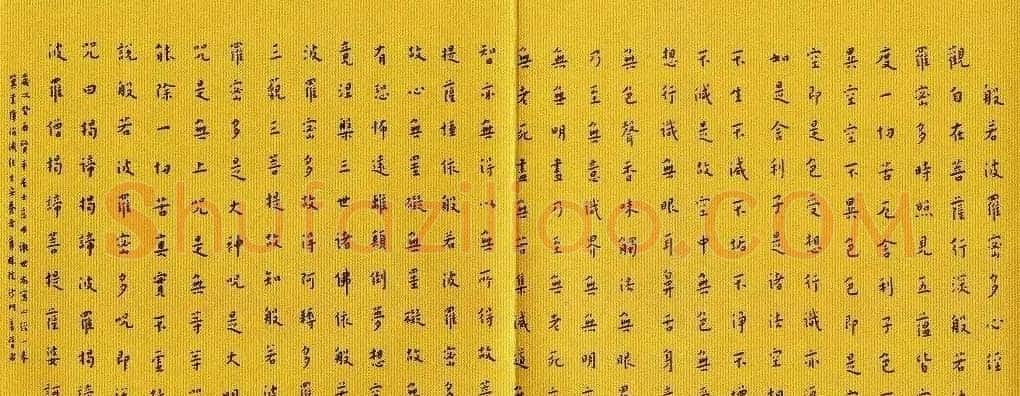 般若波羅密多心經
觀自在菩薩行深般若
羅密多時照見五蘊皆
度一切苦厄舍利子色
異空空不異色色即是
空即是色受想行識亦
如是舍利子是諸法空
不生不滅不垢不淨不
不減是故空中無色無
想行識無眼耳鼻舌身
無色聲香味觸法無眼
乃至無意識界無無明
無無明盡乃至無老死
無老死盡無苦集滅道
智亦無得以無所得故菩
提薩埵依般若波羅密多
故心無罣礙無罣礙故
有恐怖遠離顛倒夢想
竟涅槃三世諸佛依般
波羅密多故得阿耨多羅
三藐三菩提故知般若波
羅密多是大神咒是大明
咒是無上咒是無等等咒
能除一切苦真實不虛
說般若波羅密多咒即
咒曰揭諦揭諦波羅揭諦
波羅僧揭諦菩提薩婆訶
Shufaziliao.COM